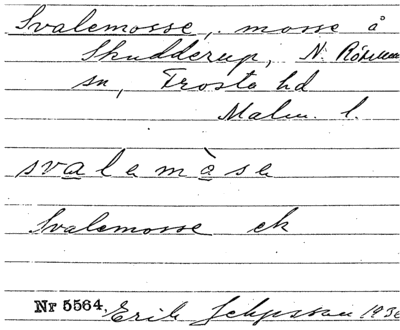 Svalemosse, mosse å
Skudderup, N. Rörum
sn, Frosta hd
Malm. l.
svalemåse
Svalemosse ek
Nr 5564. Erik 1936